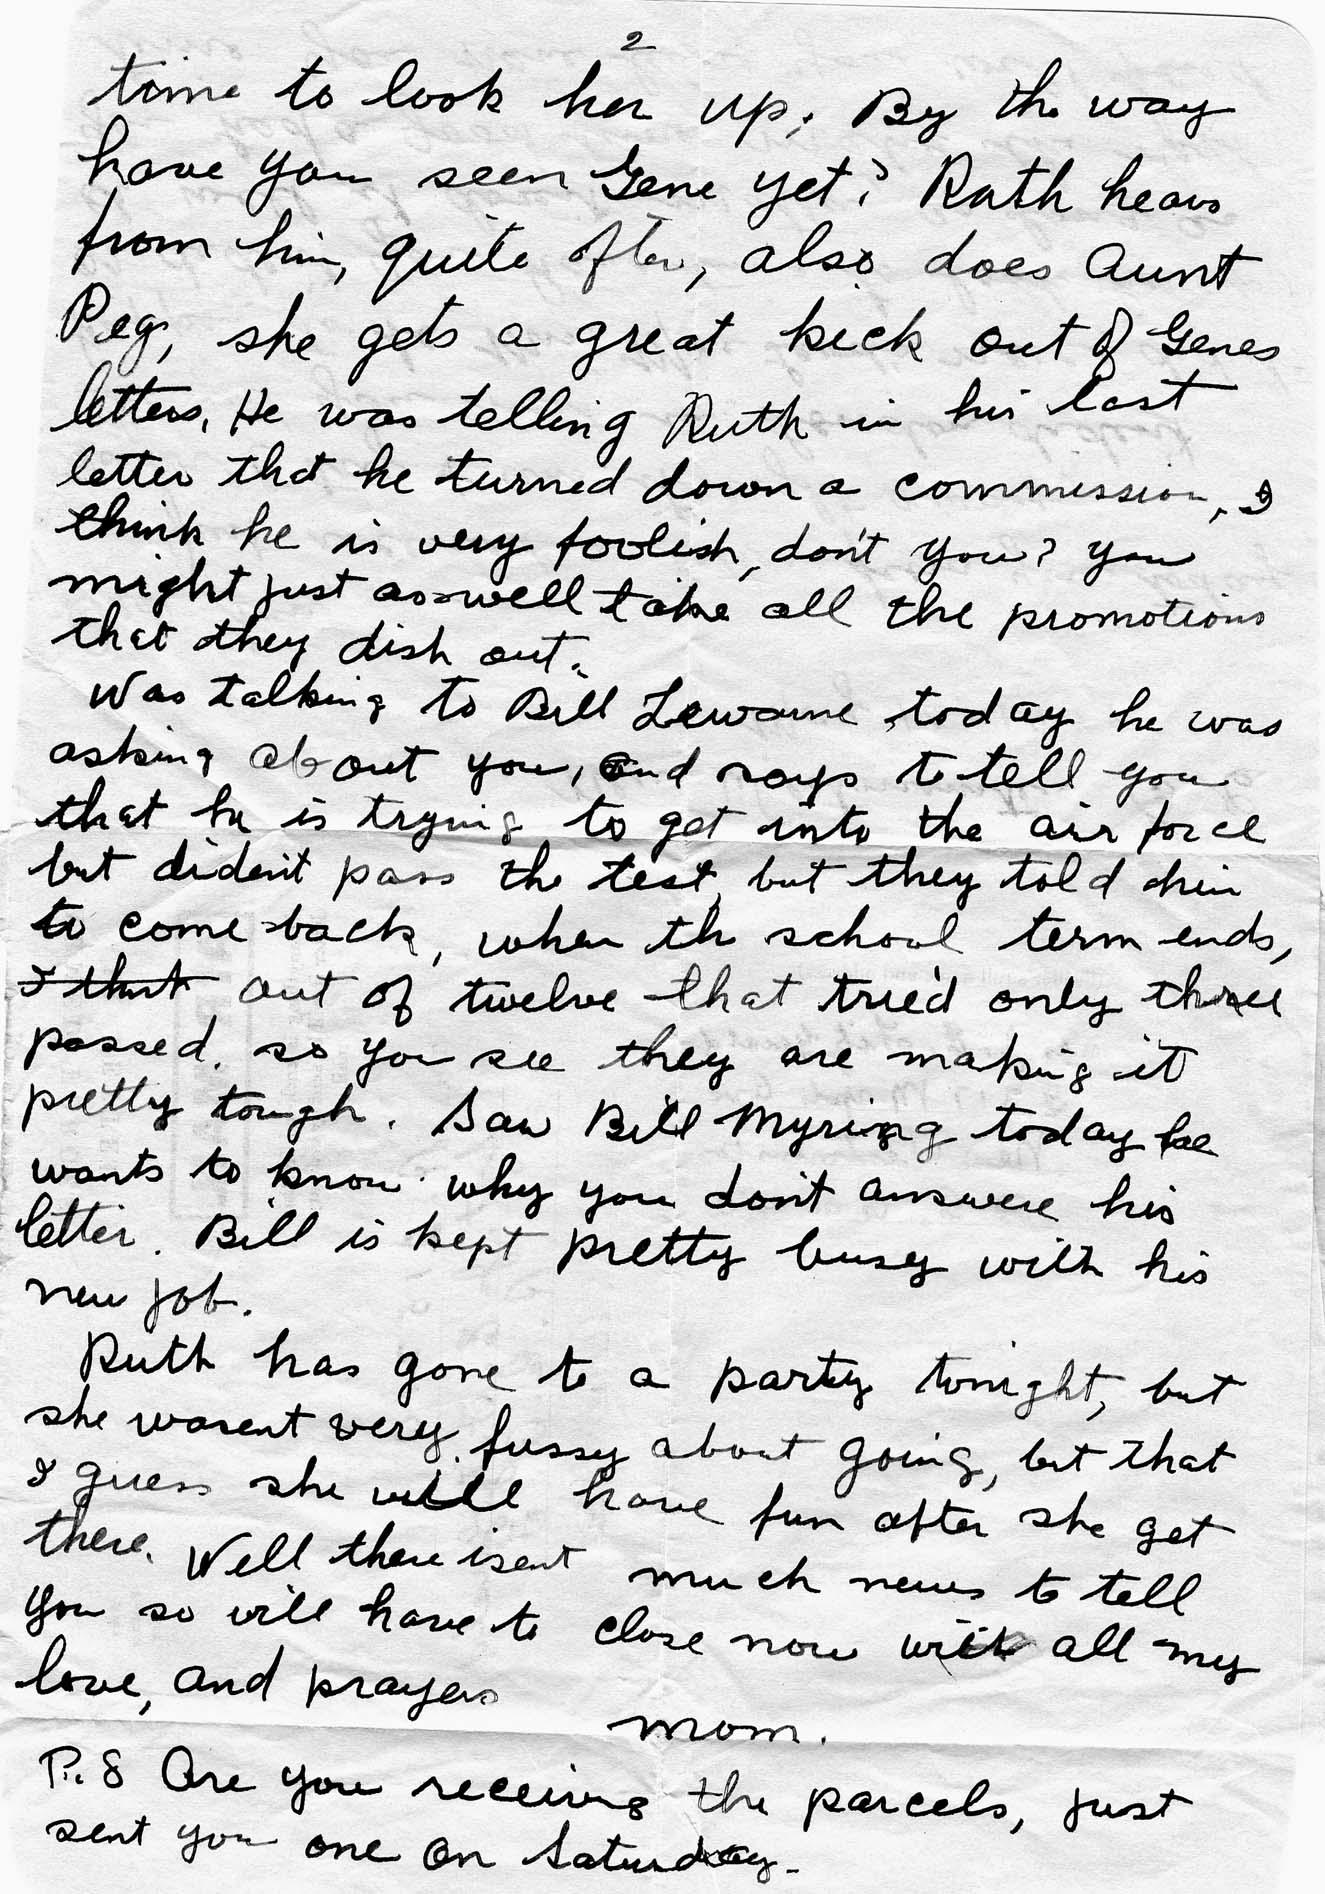 2
time to look her up, By the way
have you seen Gene yet? Ruth hears
from him, quite often, also does Aunt
Peg, she gets a great kick out of Genes
letters, He was telling Ruth in his last
letter that he turned down a commission, I
think he is very foolish, don't you? You
might just aswell take all the promotions
that they dish out.
Was talking to Bill today he was
asking about you, and says to tell you
that he is trying to get into the air force
but dident pass the test, but they told him
to come back, when th school term ends,
I think out of twelve that tried only three
passed, so you see they are making it
pretty tough. Saw Bill Myring today he
wants to know why you don't answere his
letter. Bill is kept pretty busy with his
new job.
Ruth has gone to a party tonight, but
she wasent very fussy about going, but that
I guess she will have fun after she get
there. Well there isent much news to tell
you so will have to close now with all my
love, and prayers
mom.
P.S Are you receiving the parcels, just
sent you one on Saturday.